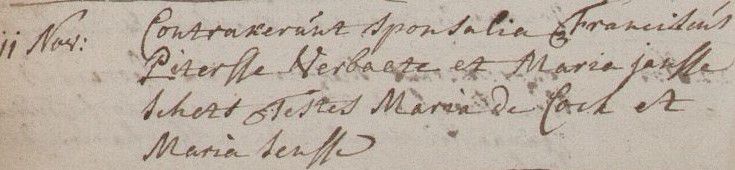 ii Nov: Contraxerunt sponsalia Franciscus
Pitersse Verbaete et Maria jansse
schets Testes Maria de Cock et
Maria sensse